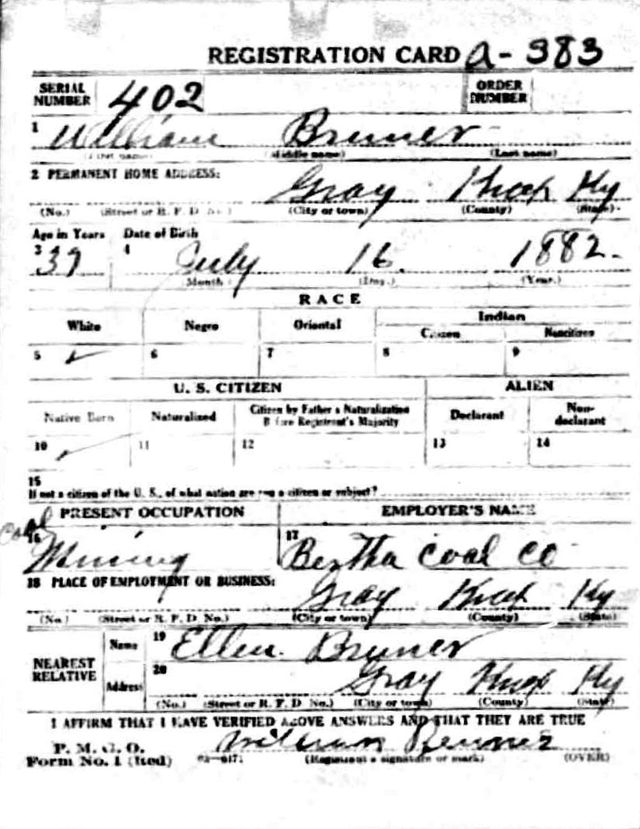 REGISTRATION CARD A-383
SERIAL NUMBER 402 ORDER NUMBER
1 William Bruner
(First name) (Middle name) (Last name)
2 PERMANENT HOME ADDRESS:
Gray Knox Ky
(No.) (Street or R. F. D. No.) (City or town) (County) (State)
Age in Years Date of Birth
3 37 4 July 16. 1882.
(Month.) (Day.) (Year.)
RACE
White Negro Oriental Indian
Citizen Noncitizen
5 ✓ 6 7 8 9
U. S. CITIZEN ALIEN
Native Born Naturalized Citizen by Father's Naturalization Before Registrant's Majority Declarant Non-declarant
10 ✓ 11 12 13 14
15
If not a citizen of the U. S., of what nation are you a citizen or subject?
PRESENT OCCUPATION EMPLOYER'S NAME
16 Coal Mining 17 Bertha Coal Co
18 PLACE OF EMPLOYMENT OR BUSINESS:
Gray Knox Ky
(No.) (Street or R. F. D. No.) (City or town) (County) (State)
NEAREST RELATIVE
Name 19 Ellen Bruner
Address 20 Gray Knox Ky
(No.) (Street or R. F. D. No.) (City or town) (County) (State)
I AFFIRM THAT I HAVE VERIFIED ABOVE ANSWERS AND THAT THEY ARE TRUE
William Bruner
P. M. G. O.
Form No. 1 (Red) (Registrant's signature or mark) (OVER)